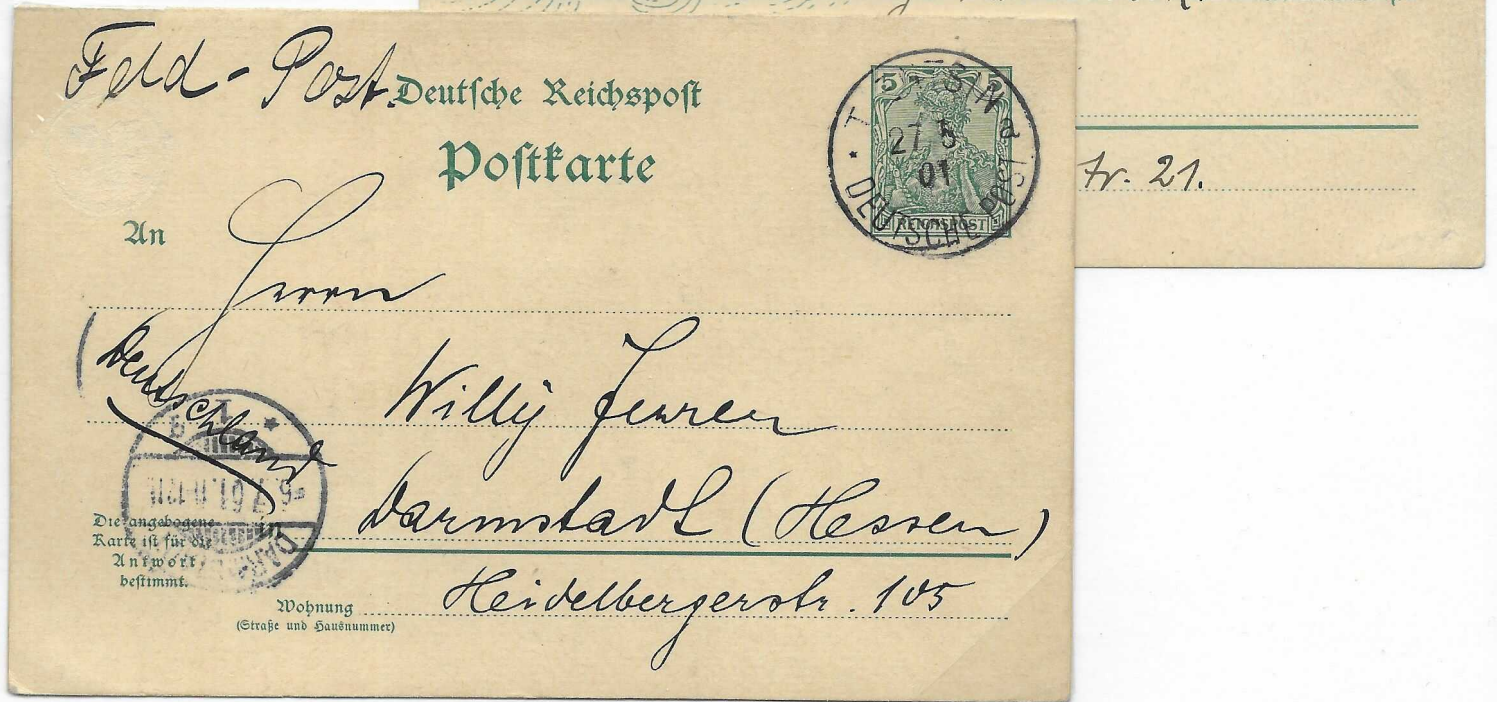 Feld-Post.
Deutsche Reichspost
Postkarte
5 5
REICHSPOST
27/5
01
DEUTSCHE POST
d
An
Herrn
(Deutschland
Willy
Darmstadt (Hessen)
Die angebogene
Karte ist für die
Antwort
bestimmt.
Wohnung
(Straße und Hausnummer)
Heidelbergerstr. 105
tr. 21.